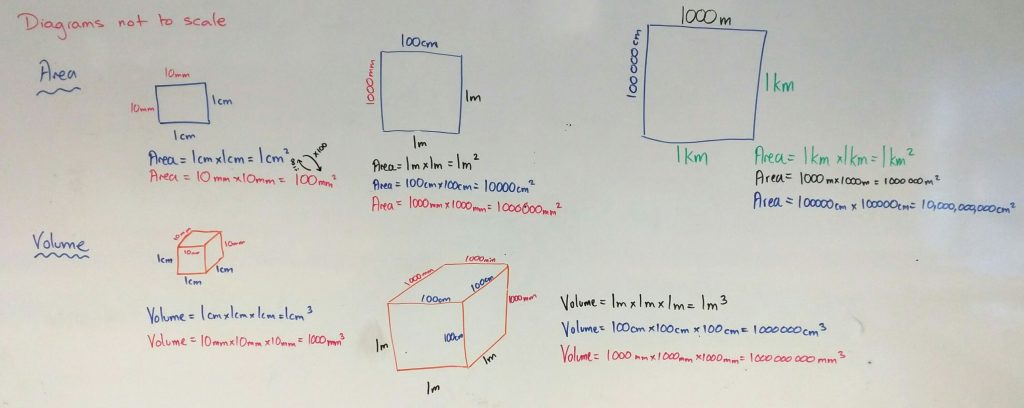 Diagrams not to scale
Area
10mm
10mm
1cm
1cm
Area = 1cm x 1cm = 1cm²
Area = 10mm x 10mm = 100mm²
x100
100cm
1000mm
1m
1m
Area = 1m x 1m = 1m²
Area = 100cm x 100cm = 10000cm²
Area = 1000mm x 1000mm = 1000000mm²
1000m
100000cm
1km
1km
Area = 1km x 1km = 1km²
Area = 1000m x 1000m = 1000000m²
Area = 100000cm x 100000cm = 10,000,000,000cm²
Volume
10mm
10mm
10mm
1cm
1cm
1cm
Volume = 1cm x 1cm x 1cm = 1cm³
Volume = 10mm x 10mm x 10mm = 1000mm³
1000mm
1000mm
100cm
100cm
1000mm
100cm
1m
1m
1m
Volume = 1m x 1m x 1m = 1m³
Volume = 100cm x 100cm x 100cm = 1000000cm³
Volume = 1000mm x 1000mm x 1000mm = 1000000000mm³